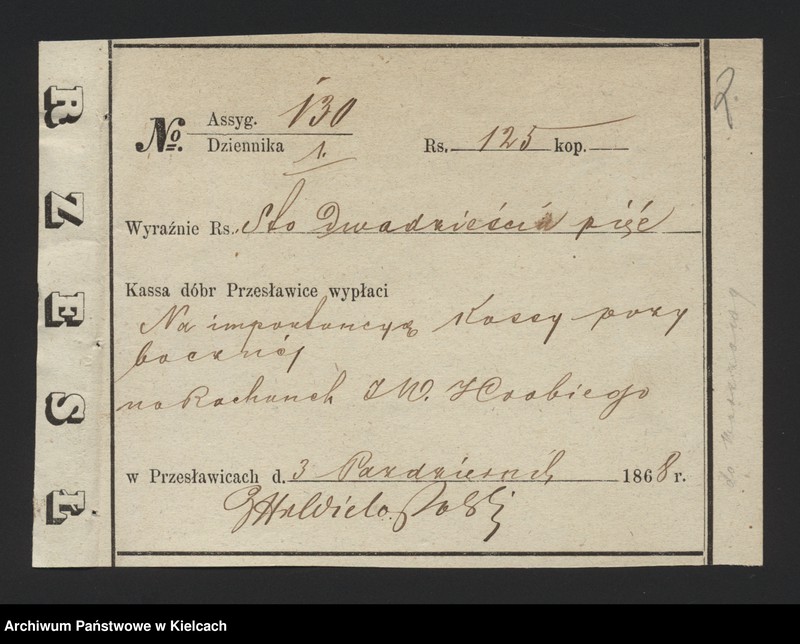 RZESŁ
2.
No. Assyg. 130
Dziennika 1.
Rs. 125 kop.
Wyraźnie Rs. Sto Dwadzieścia pięć
Kassa dóbr Przesławice wypłaci
Na importancyą Kassy przy
bocznéj
na Rachunek J W. Hrabiego
w Przesławicach d. 3 Pazdziernik 1868 r.
Archiwum Państwowe w Kielcach